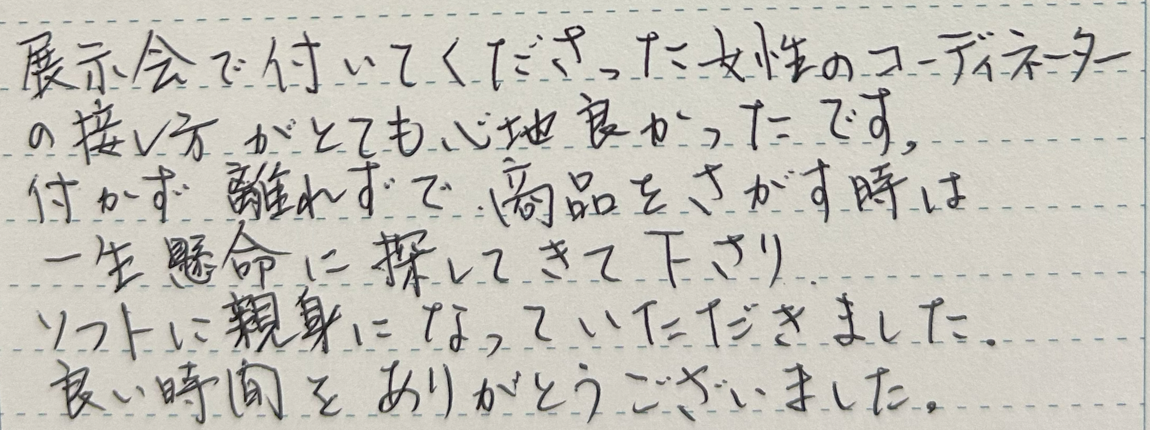 展示会で付いてくださった女性のコーディネーター
の接し方がとても心地良かったです。
付かず離れずで、商品をさがす時は
一生懸命に探してきて下さり
ソフトに親身になっていただきました。
良い時間をありがとうございました。